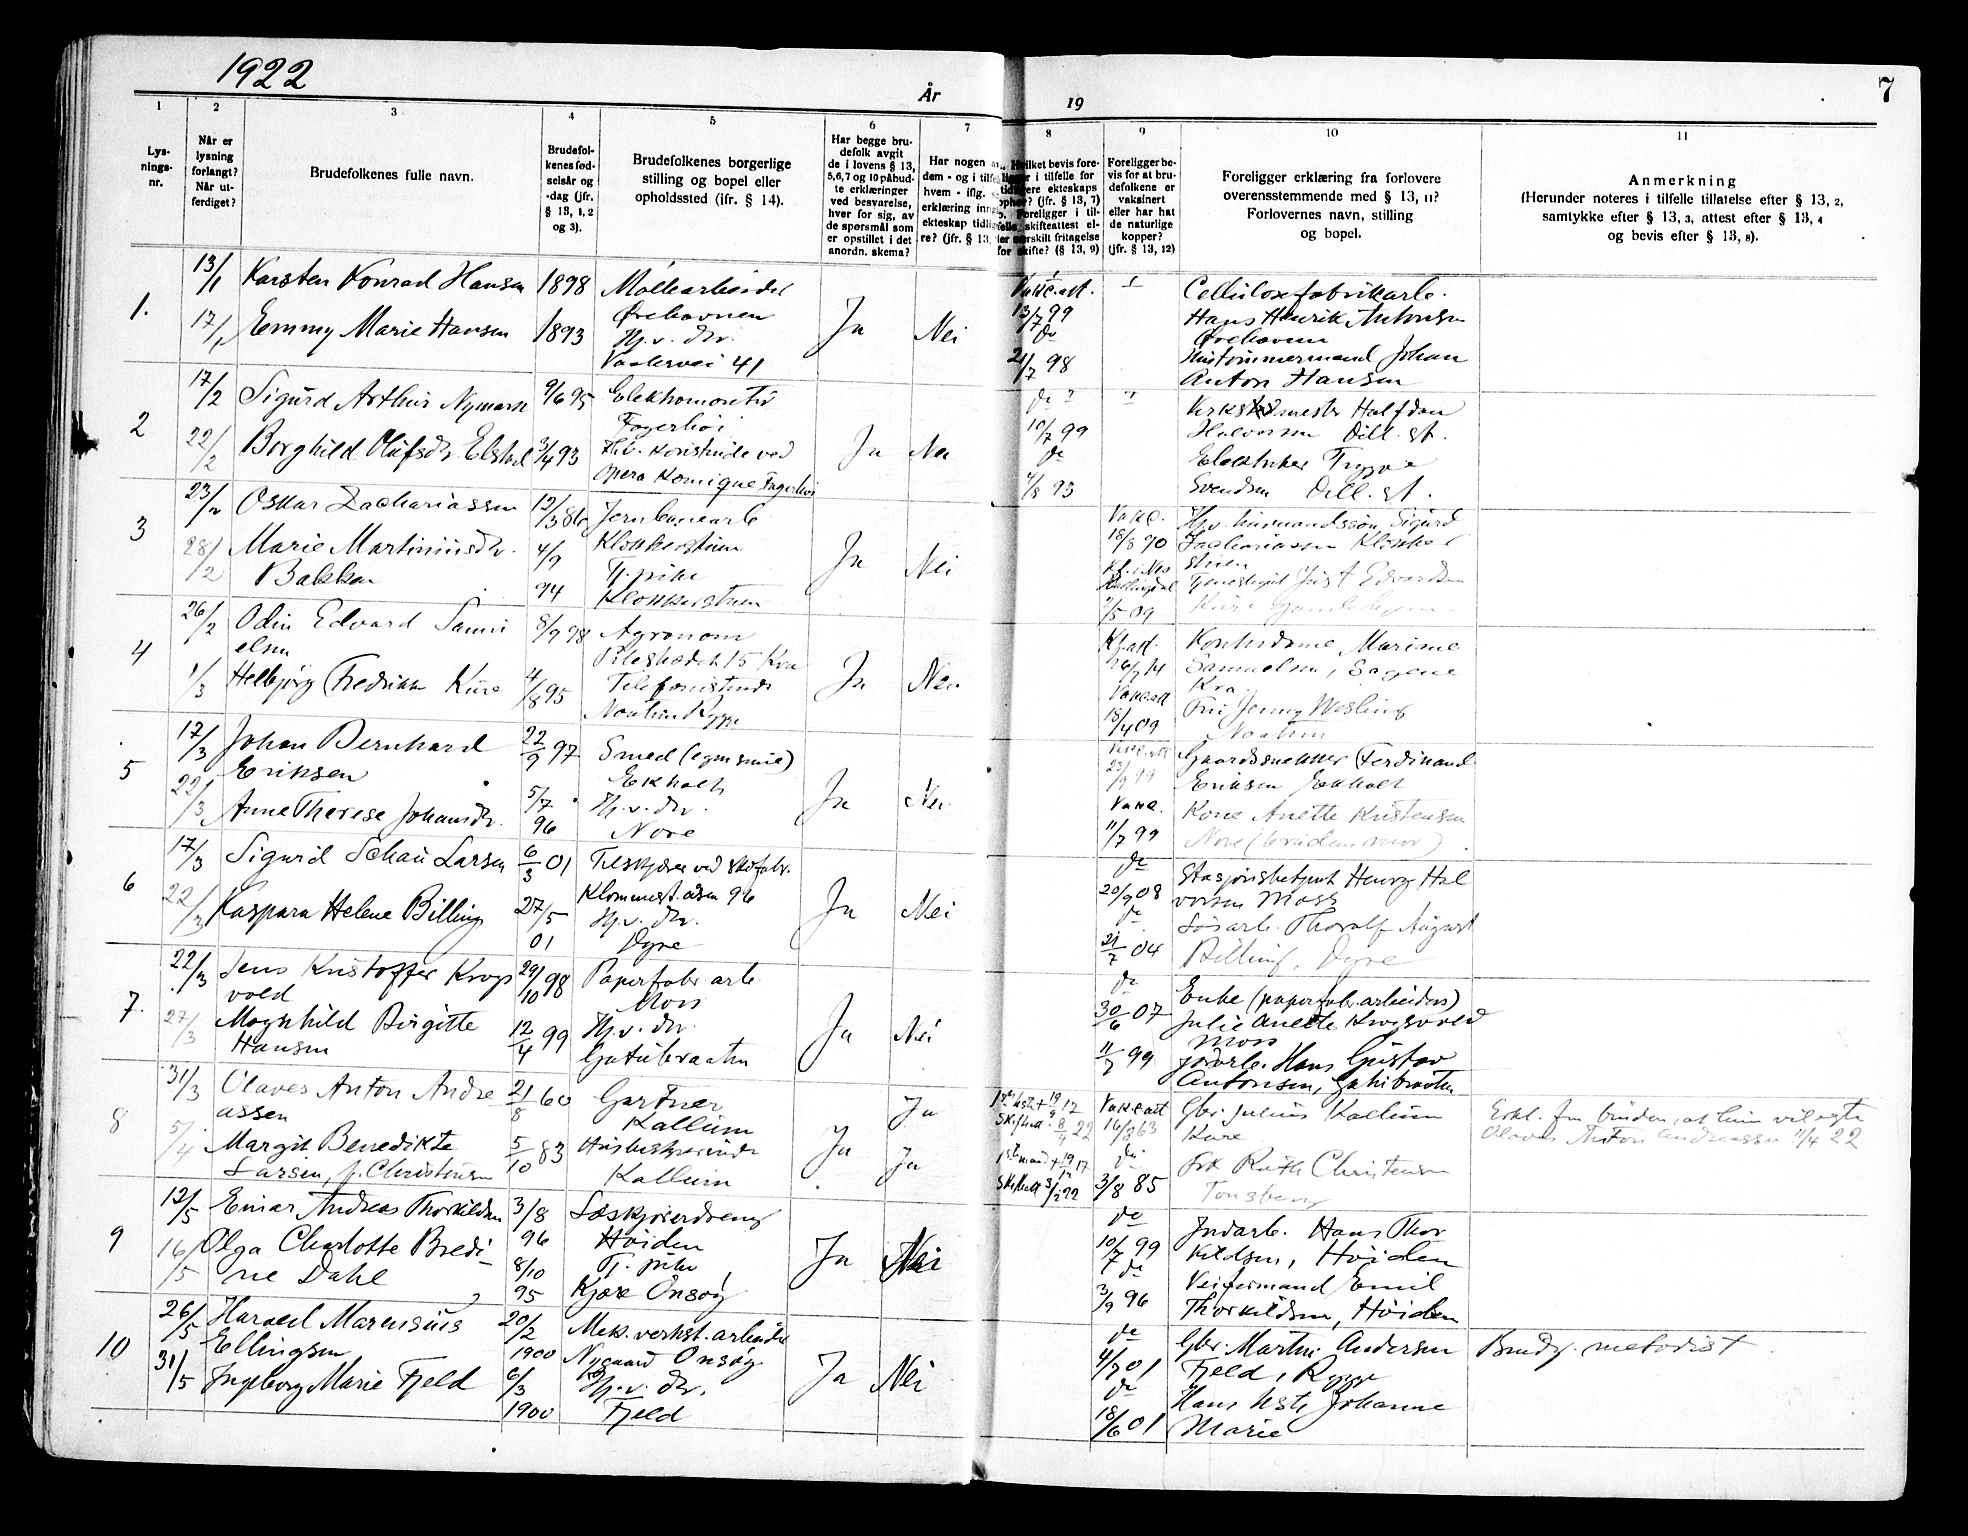 1922
År
19
7
1
Lys-
nings-
nr.
2
Når er
lysning
forlangt?
Når ut-
ferdiget?
3
Brudefolkenes fulle navn.
4
Brudefol-
kenes fød-
selsår og
-dag (jfr.
§ 13, 1, 2
og 3).
5
Brudefolkenes borgerlige
stilling og bopel eller
opholdssted (ifr. § 14).
6
Har begge bru-
defolk avgit
de i lovens § 13,
5,6,7 og 10 påbud-
te erklæringer
ved besvarelse,
hver for sig, av
de spørsmål som
er opstillet i det
anordn. skema?
7
Har nogen
dem - og i tilf
hvem - iflg.
erklæring inng
ekteskap tidlig
re? (jfr. § 13,
8
Hvilket bevis fore-
i tilfelle for
ekteskaps
(jfr. § 13, 7)
Foreligger i til-
felle skifteattest el-
særskilt fritagelse
for skifte? (§ 13, 9)
9
Foreligger be-
vis for at bru-
defolkene er
vaksinert
eller har hat
de naturlige
kopper?
(jfr. § 13, 12)
10
Foreligger erklæring fra forlovere
overensstemmende med § 13, 11?
Forlovernes navn, stilling
og bopel.
11
Anmerkning
(Herunder noteres i tilfelle tillatelse efter § 13, 2,
samtykke efter § 13, 3, attest efter § 13, 4
og bevis efter § 13, 8).
1.
13/1
17/1
Karsten Konrad Hansen
Emmy Marie Hansen
1898
1893
Møllearbeider
Ørehavnen
Hj. v. dtr.
Vaalervei 41
Ja
Nei
Vakc.att.
13/7 99
do
21/7 98
Cellulosefabrikarb.
Hans Henrik Antonsen
Ørehavnen
Hustømmermand Johan
Anton Hansen
2
17/2
22/2
Sigurd Arthur Nymark
Borghild Olufsdtr.
9/6 95
3/4 93
Elektromontør
Fagerhøi
opera Komique Fagerhøi
Ja
Nei
do
10/7 99
do
93
Verkstedmester Halfdan
Halvorsen Dill. st.
Elektriker Trygve
Svendsen Dill. st.
3
23/2
28/2
Oskar Zachariassen
Marie Martinusdtr.
Bakken
12/3 86
4/9
94
Jernbanearb
Klokkerstuen
Tj. pike
Klokkerstuen
Ja
Nei
Vakc.
18/8 90
Kf. i Nes
Hallingdal
/5 09
Hj. v. husmandssøn Sigurd
Zachariassen Klokker
stuen
Edvardsen
Kure
4
26/2
1/3
Odin Edvard Samu
elsen
Helbjørg Fredrikke Kure
8/9 98
4/8 95
Agronom
Pilestrædet 15 Kra
Telefonistinde
Noatun Rygge
Ja
Nei
Kf. att.
Vakc.att
18/4 09
Kontordame Marine
Samuelsen, Sagene
Kra
Frk Jenny Wesling
Noatun
5
17/3
22/3
Johan Bernhard
Eriksen
Anne Therese Johansdtr.
22/9 97
5/7
96
Smed (egen smie)
Ekholt
Hj. v. dtr.
Nore
Ja
Nei
Vakc.att
99
Vakc.
11/7 99
Gaardssnekker Ferdinand
Eriksen Ekholt
Kone Anette Kristensen
Nore (brudens mor)
6
17/3
22/3
Sigurd Schau Larsen
Kaspara Helene Billing
6/3 01
27/5
01
Tilskjærer ved skofabr.
96
Hj. v. dtr.
Dyre
Ja
Nei
do
20/9 08
do
21/7 04
Stasjonsbetjent Henry Hal
vorsen Moss
Thoralf August
Billing, Dyre
7.
22/3
27/3
Jens Kristoffer Krogs
vold
Magnhild Birgitte
Hansen
29/10 98
12/4 99
Papirfabr arb.
Moss
Hj. v. dtr.
Gatubraaten
Ja
Nei
do
30/6 07
11/7 99
Enke (papirfabr. arbeiders)
Julie Anette Krogsvold
Moss
Jordarb. Hans Gustav
Antonsen, Gatubraaten
8
31/3
5/4
Olaves Anton Andre
assen
Margit Benedikte
Larsen, f. Christensen
21/8 60
5/10 83
Gartner
Kallum
Husbestyrerinde
Kallum
Ja
Ja
Ja
1ste hstr + 19/9 17
Skifteatt 8/4 22
1ste mand + 19/12 17
Skifteatt 3/2 22
Vakc att
16/8 63
do
3/8 85
Gbr. Julius Kallum
Kure
Frk Ruth Christensen
Tønsberg
Erkl. fra bruden, at hun vil egte
Olaves Anton Andreassen 1/4 22
9
12/5
16/5
Einar Andreas Thorkildsen
Olga Charlotte Bredi-
ne Dahl
3/8
96
8/10
95
Høiden
Tj. pike
Kjøre Onsøy
Ja
Nei
do
10/7 99
do
3/9 96
Jordarb. Hans Thor
kildsen, Høiden
Veiformand Emil
Thorkildsen, Høiden
10
26/5
31/5
Harald Marensius
Ellingsen
Ingeborg Marie Fjeld
20/2
1900
6/3
1900
Mek. verkst. arbeider
Nygaard Onsøy
Hj. v. dtr.
Fjeld
Ja
Nei
do
4/7 01
do
18/6 01
Gbr. Martin Andersen
Fjeld, Rygge
Hans hstr Johanne
Marie
Brudg. metodist